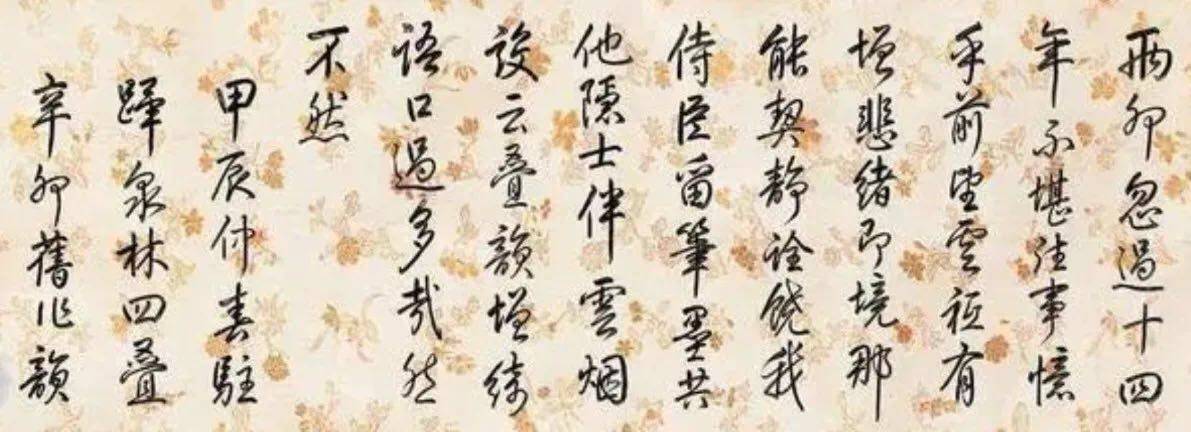 兩卯忽過十四
年不堪往事憶
乎前望雲祗有
增悲緒即境那
能契靜詮饒我
侍臣留筆墨共
他隱士伴雲烟
設云叠韻增綺
語口過多哉然
不然
甲辰仲春駐
蹕泉林四叠
辛卯舊作韻